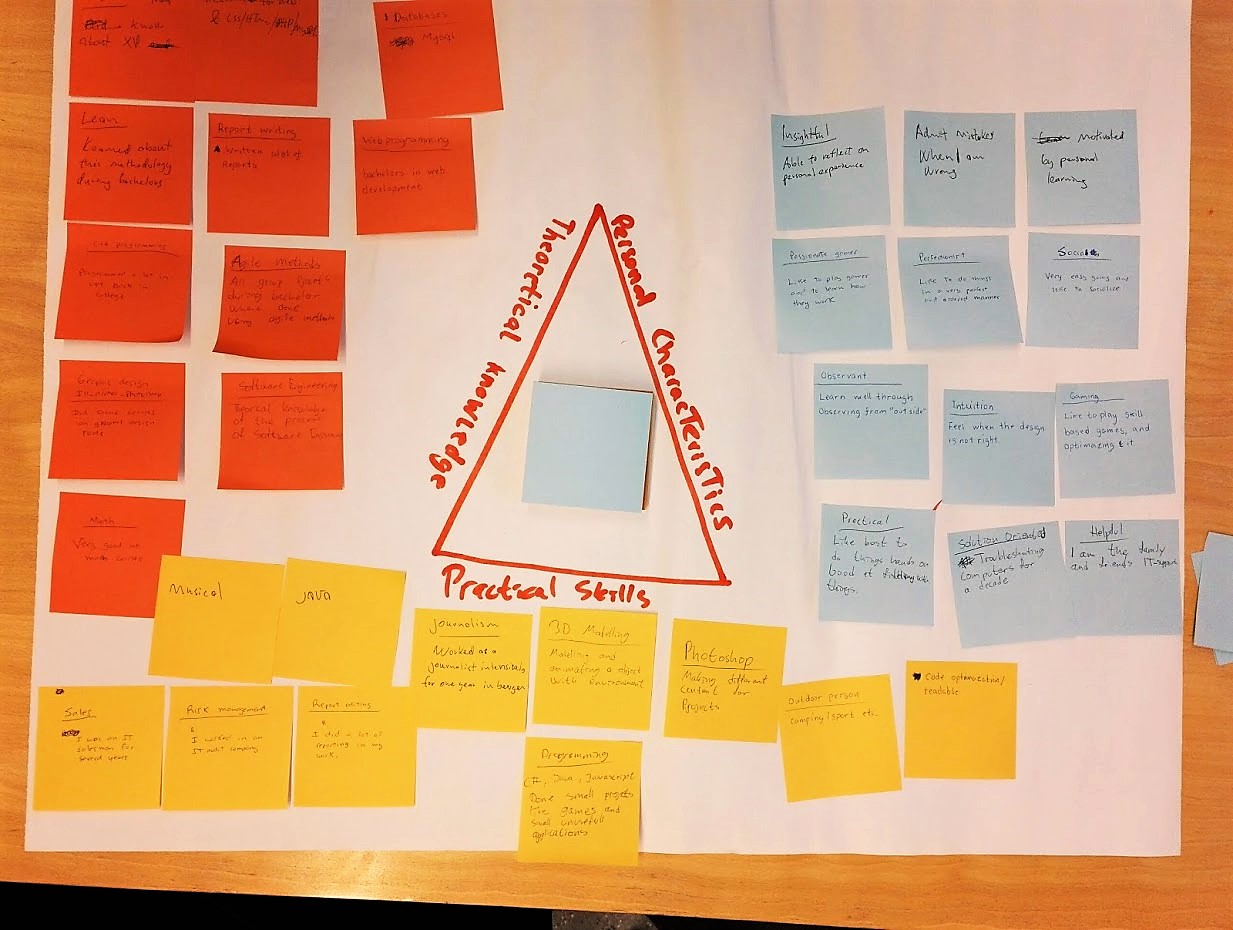 know
about XP
& CSS/HTML/PHP/MySQL
Databases
MySql
Learn
Learned about
this methodology
during bachelors
Report writing
Written a lot of
Reports
Web programming
bachelors in web
development
C++ programming
Programmed a lot in
back in
college
Agile Methods
All group
during bachelor
where done
Using agile methods
Graphic design
Illustrator, Photoshop
Did some courses
on graphic design
Software Engineering
knowledge
of the process
of Software
Math
Very good at
math courses
Theoretical knowledge
Personal CharacTerisTics
Practical Skills
Insightful
Able to reflect on
personal experience
Admit mistakes
When I am
wrong
motivated
by personal
learning
Passionate gamer
Like to play games
and to learn how
they work
Perfectionist
Like to do things
in a very perfect
and ordered manner
Social
Very easy going and
like to socialize
Observant
Learn well through
Observing from "out side"
Intuition
Feel when the design
is not right.
Gaming
Like to play skill
based games, and
optimazing it
Practical
Like best to
do things hands on
Good at
things.
Solution Oriented
Troubleshooting
computers for
a decade
Helpful
I am the family
and friends IT-support
Musical
JAVA
Journalism
Worked as a
journalist intensively
for one year in bergen
3D Modelling
Modeling and
animating a object
With environment
Photoshop
Making different
Content for
Projects
Outdoor person
camping/sport etc.
Code optimization/
readable
Sales
I was an IT
salesman for
several years
Risk management
I worked in an
IT audit company
Report writing
I did a lot of
reporting in my
work.
Programming
C#, Java, Javascript
Done small projects
like games and
small unusefull
applications